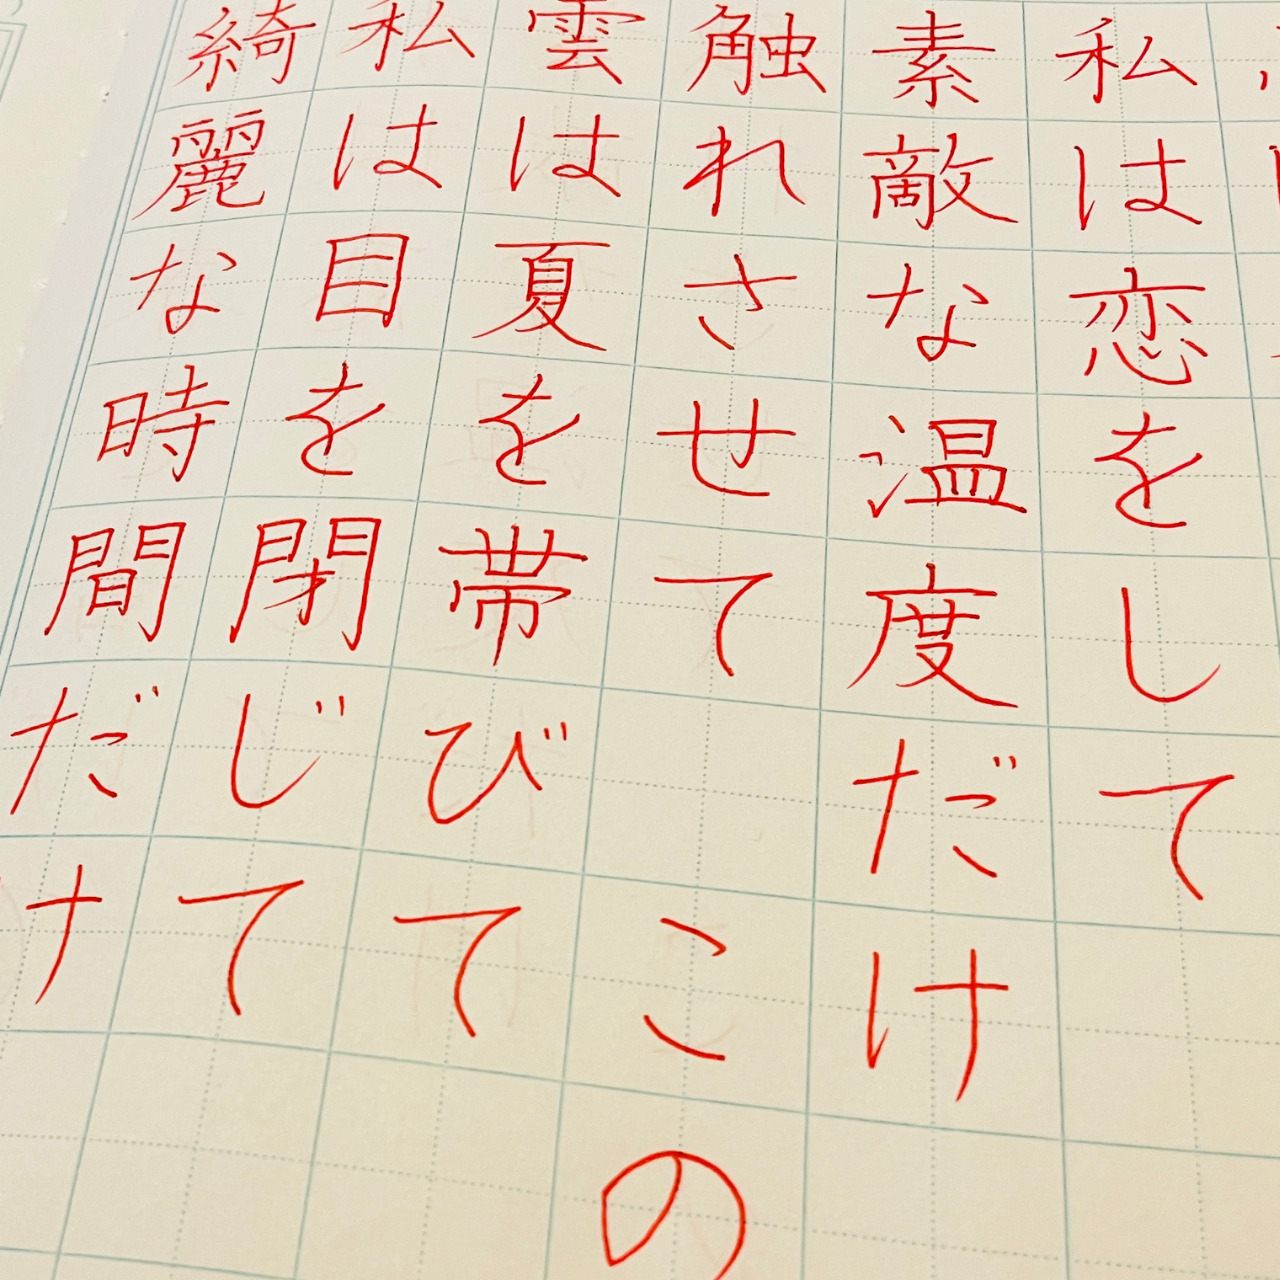 私は恋をして
素敵な温度だけ
触れさせて この
雲は夏を帯びて
私は目を閉じて
綺麗な時間だけ